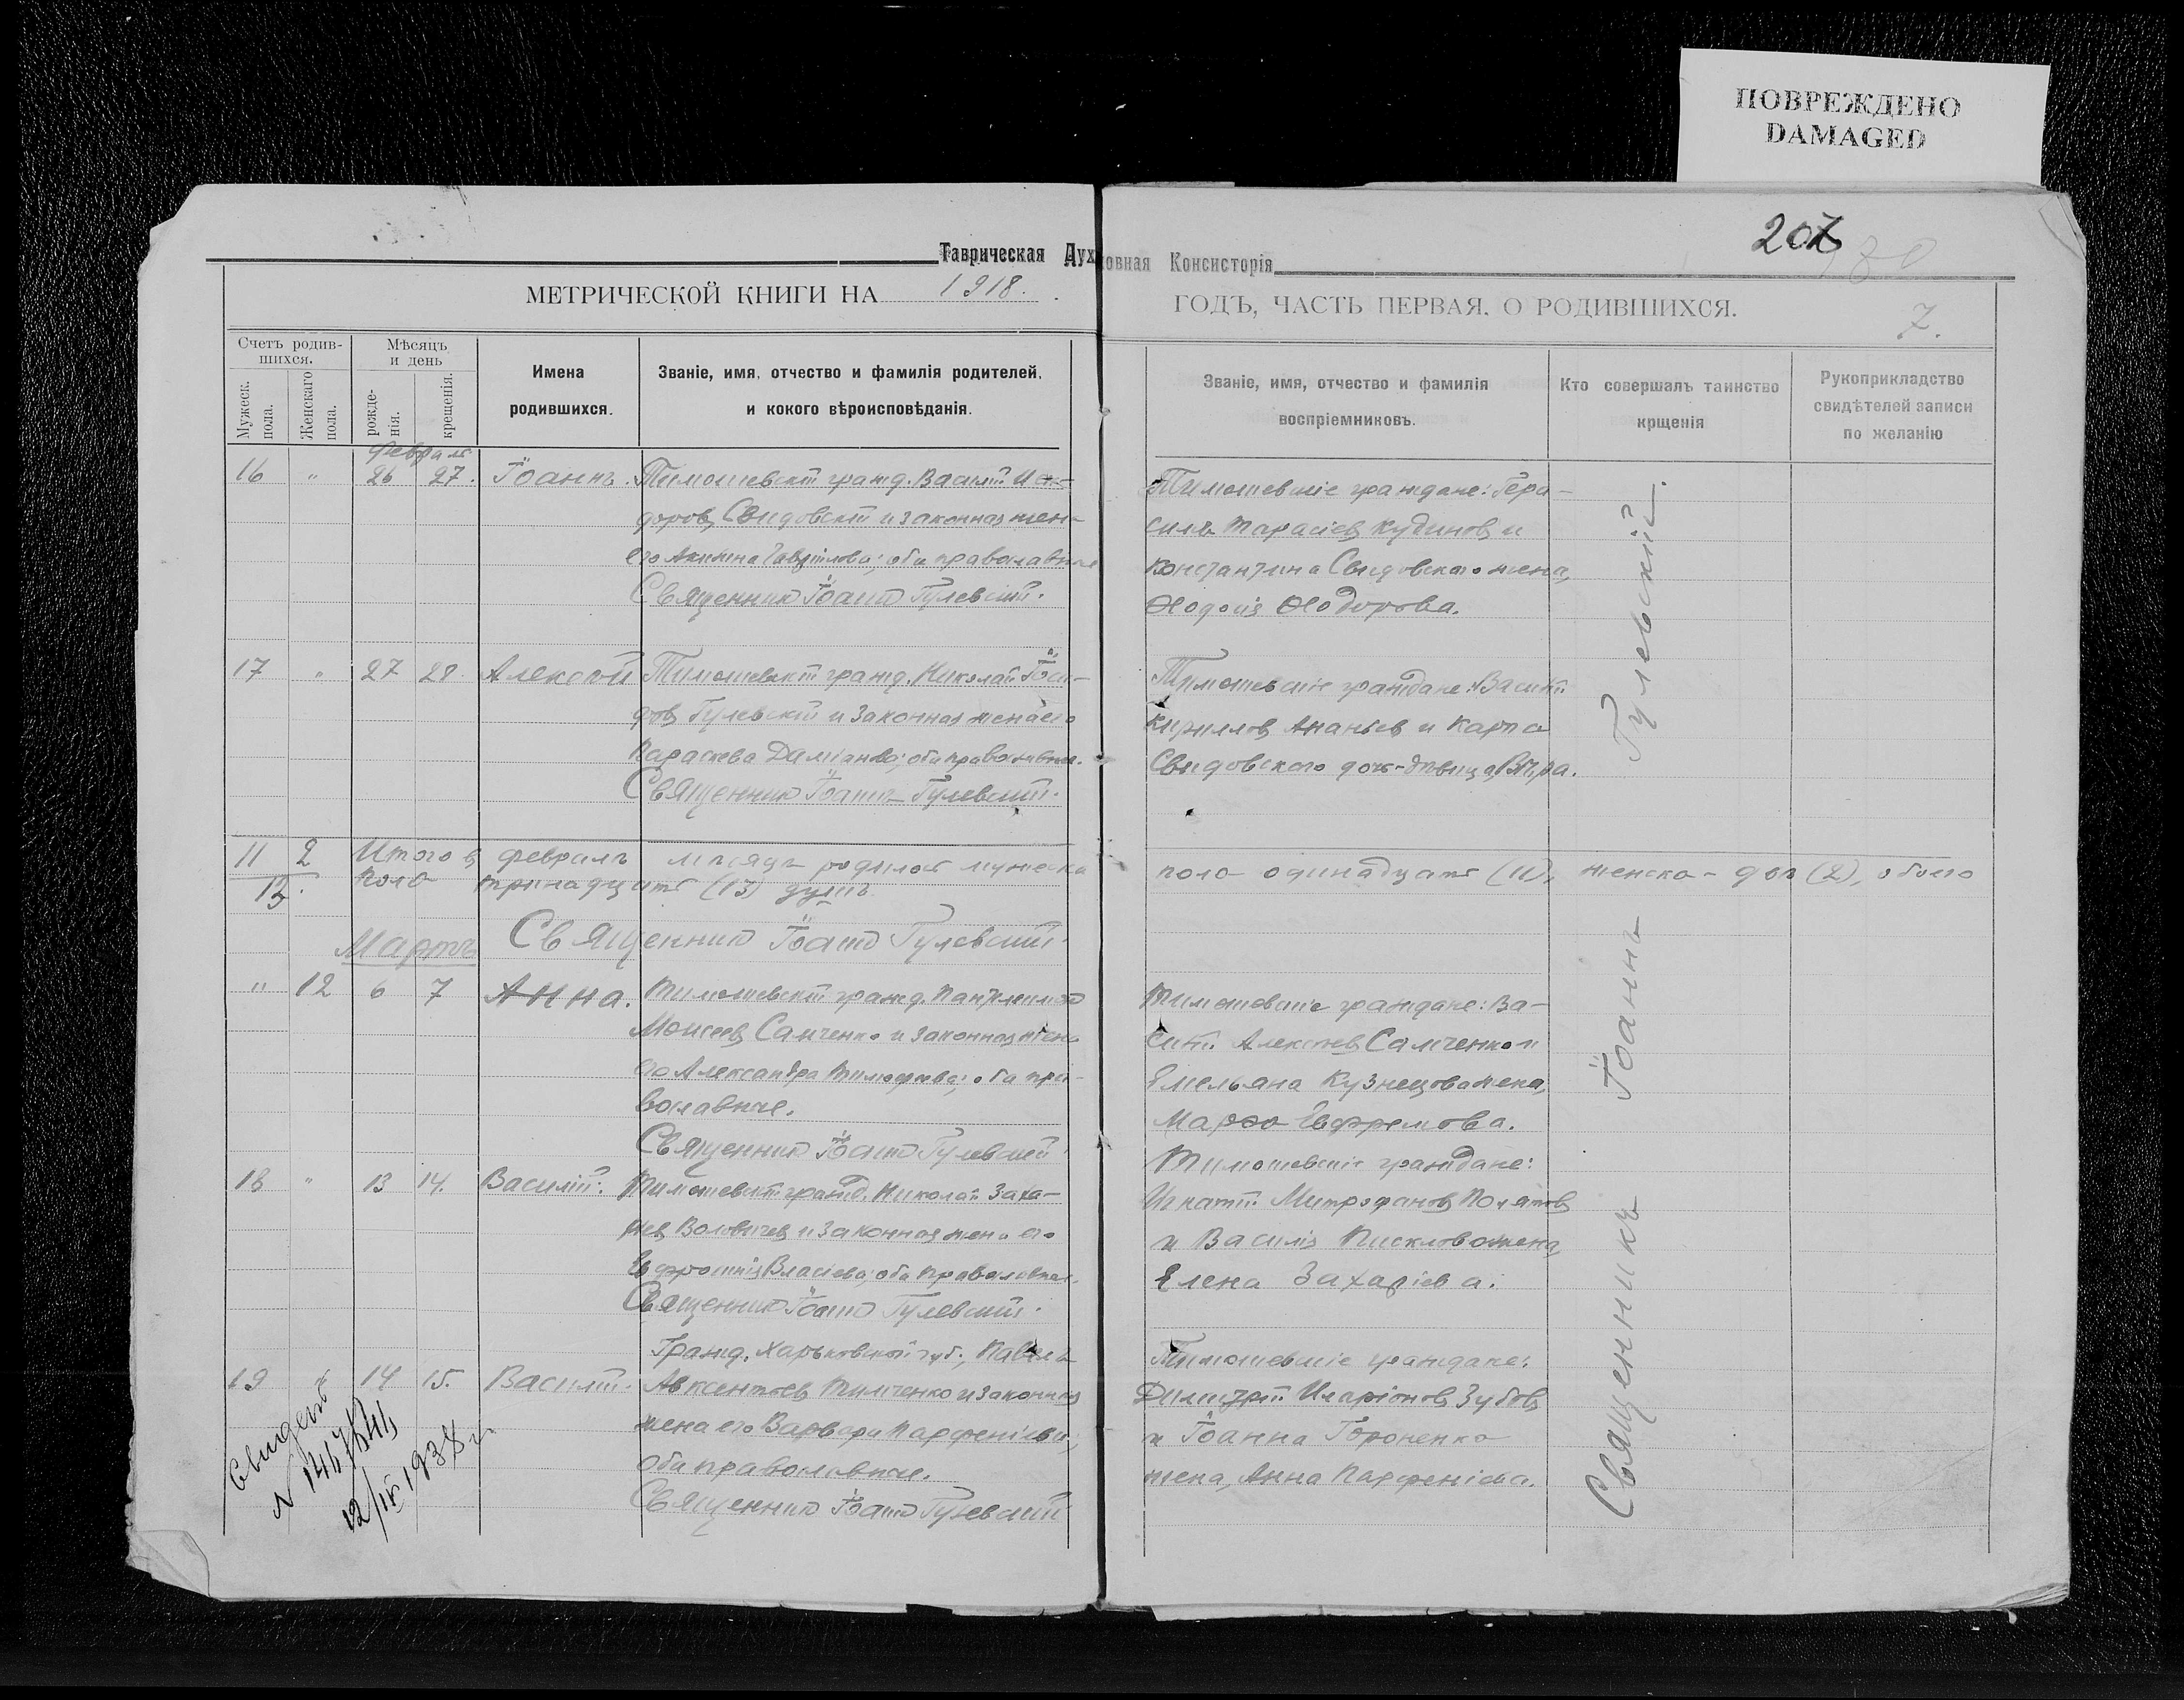 ПОВРЕЖДЕНО
DAMAGED
207
80
Таврическая Духовная Консисторія
МЕТРИЧЕСКОЙ КНИГИ НА 1918. ГОДЪ, ЧАСТЬ ПЕРВАЯ. О РОДИВШИХСЯ.
7.
Счетъ родив-
шихся.
Мужеск.
пола.
Женскаго
пола.
Мѣсяцъ
и день
рожде-
нія.
крещенія.
Имена
родившихся.
Званіе, имя, отчество и фамилія родителей,
и кокого вѣроисповѣданія.
Званіе, имя, отчество и фамилія
воспріемниковъ.
Кто совершалъ таинство
крщенія
Рукоприкладство
свидѣтелей записи
по желанію
Февраля
16 " 26 27. Іоаннъ. Тимошевскій гражд. Василій Иси-
доровъ Свидовскій и законная жена
его Акилина; оба православные
Священникъ Іоаннъ Гулевскій.
Тимошевскіе граждане: Гера-
симъ Тарасіевъ Кудиновъ и
Константина Свидовскаго жена,
Ѳеодосія Ѳеодорова.
17 " 27 28. Алексѣй Тимошевскій гражд. Николай Іоси-
фовъ Гулевскій и законная жена его
Параскева Даміанова; оба православные.
Священникъ Іоаннъ Гулевскій.
Тимошевскіе граждане: Василій
Кирилловъ Ананьев и Карпа
Свидовского дочь-дѣвица, Вѣра.
11 2 Итого въ февралѣ мѣсяцѣ родилось мужеска
пола одинадцать (11), женска - двѣ (2), обоего
13. пола тринадцать (13) душъ.
Священникъ Іоаннъ Гулевскій.
Мартъ
" 12 6 7 Анна. Тимошевскій гражд. Пантелеимонъ
Моисеевъ Самченко и законная жена
его Александра Тимофеева; оба пра-
вославные.
Священникъ Іоаннъ Гулевскій
Тимошевскіе граждане: Ва-
силій Алексѣевъ Самченко и
Емельяна Кузнецова жена,
Марѳа Ефремова.
18 " 13 14. Василій. Тимошевскій гражд. Николай Заха-
ріевъ и законная жена его
Евфросинія Власіева; оба православные.
Священникъ Іоаннъ Гулевскій.
Тимошевскіе граждане:
Игнатій Митрофановъ
и Василія жена,
Елена Захаріева.
19 " 14 15. Василій. Гражд. Харьковской губ., Павелъ
Авксентьевъ Тимченко и законная
жена его Варвара Парфеніева;
оба православные.
Священникъ Іоаннъ Гулевскій
Тимошевскіе граждане:
Димитрій Иларіоновъ Зубовъ
и Іоанна Гороненко
жена, Анна Парфеніева.
Священникъ Іоаннъ Гулевскій.
Свидет
12/IX 1938 г.